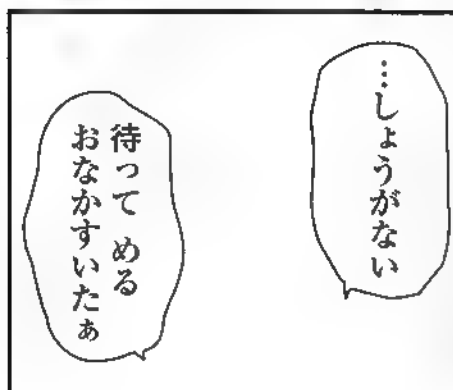 …しょうがない
待って める
おなかすいたぁ